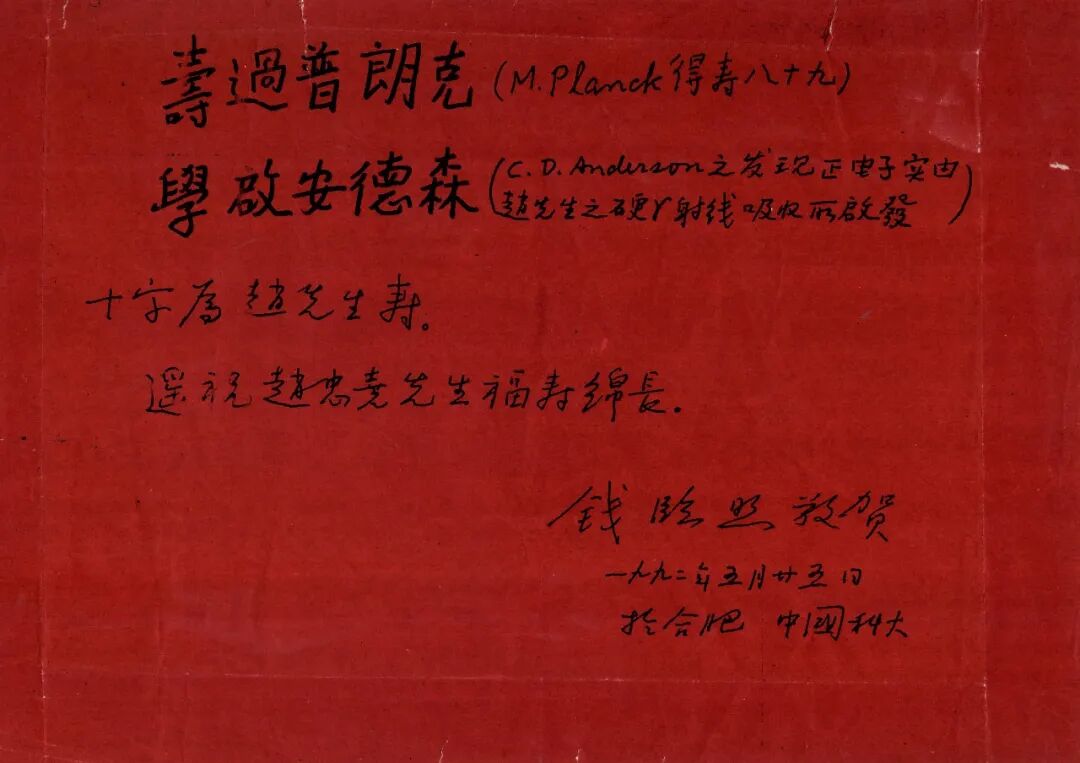 壽過普朗克(M.Planck得寿八十九)
學啟安德森(C.D.Anderson之发现正电子实由
趙先生之硬γ射线吸收所啟發)
十字為趙先生寿。
遥祝趙忠堯先生福寿綿長.
钱臨照敬贺
一九九二年五月廿五日
於合肥 中國科大